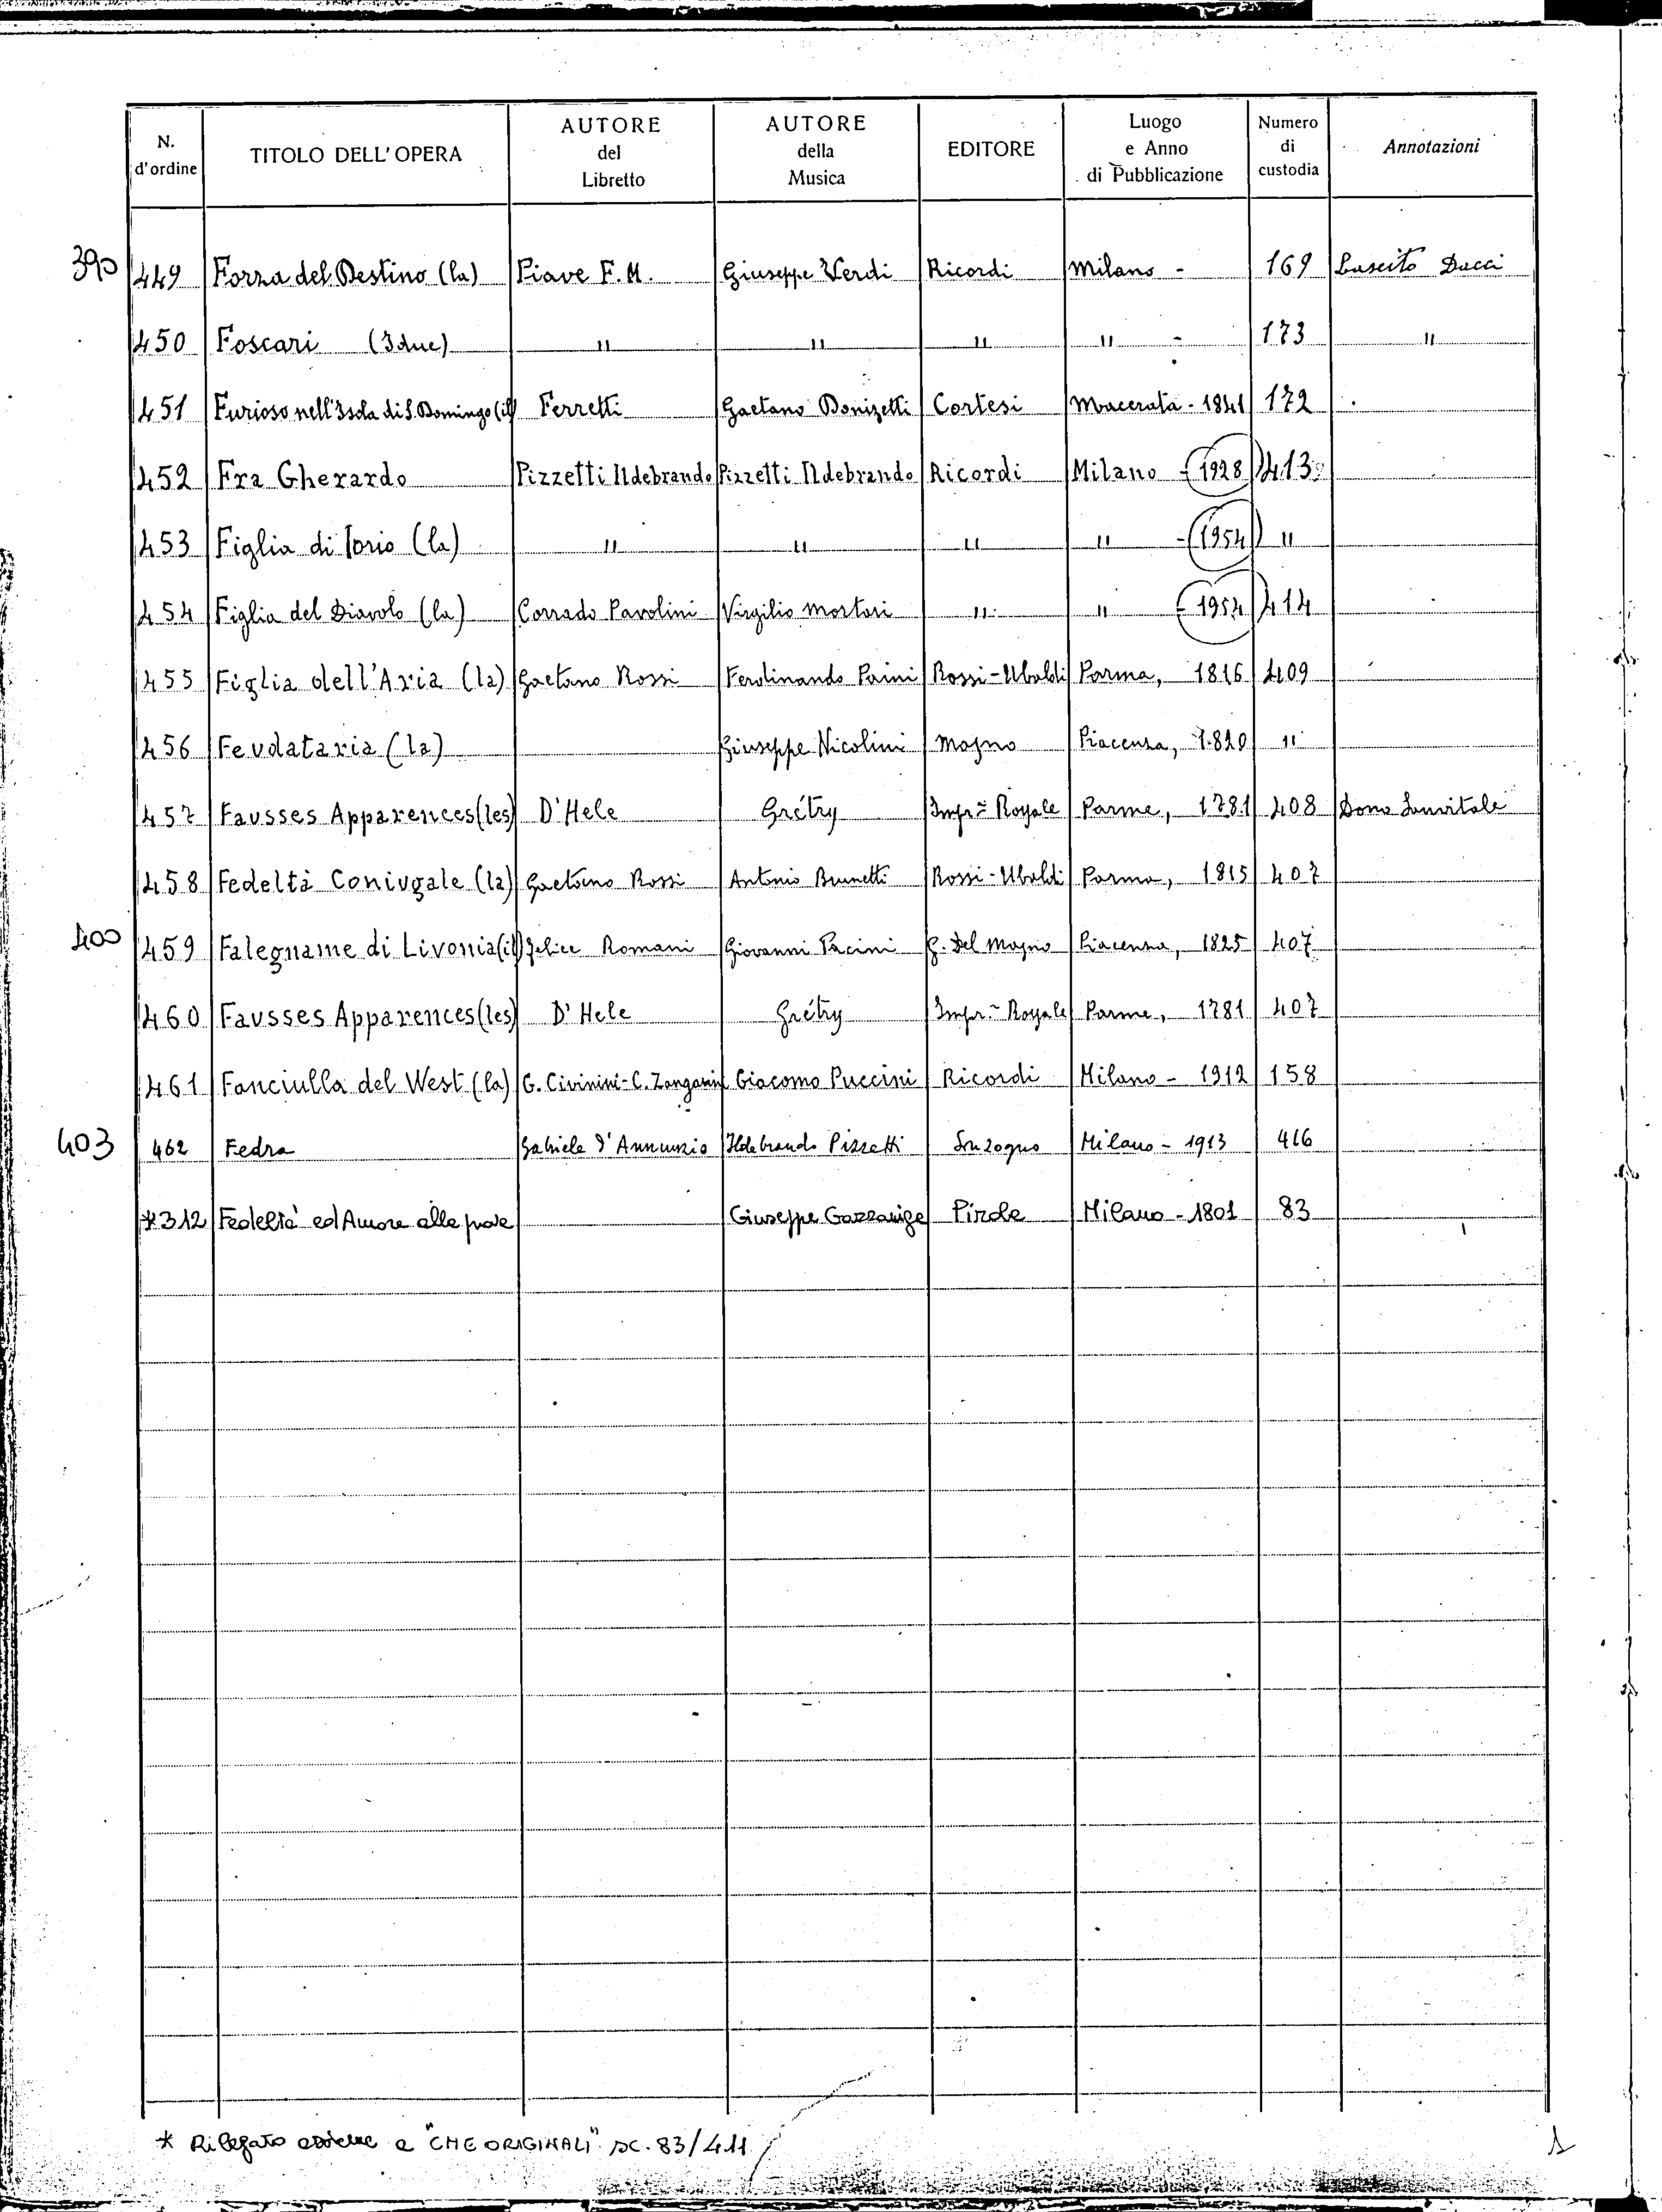 N. d'ordine | TITOLO DELL'OPERA | AUTORE del Libretto | AUTORE della Musica | EDITORE | Luogo e Anno di Pubblicazione | Numero di custodia | Annotazioni
390 449 Forza del Destino (la) Piave F. M. Giuseppe Verdi Ricordi Milano - 169 Lascito Dacci
450 Foscari (I due) " " " " - 173 "
451 Furioso nell'Isola di S. Domingo (il) Ferretti Gaetano Donizetti Cortesi Macerata - 1841 172
452 Fra Gherardo Pizzetti Ildebrando Pizzetti Ildebrando Ricordi Milano - (1928) 413
453 Figlia di Iorio (la) " " " " - (1954) "
454 Figlia del Diavolo (la) Corrado Pavolini Virgilio Mortari " " - 1954 414
455 Figlia dell'Aria (la) Gaetano Rossi Ferdinando Paini Rossi-Ubaldi Parma, 1816 409
456 Feudataria (la) Giuseppe Nicolini Majno Piacenza, 1820 "
457 Fausses Apparences (les) D'Hele Grétry Impr.e Royale Parme, 1781 408 Dono Sanvitale
458 Fedeltà Coniugale (la) Gaetano Rossi Antonio Brunetti Rossi-Ubaldi Parma, 1815 407
400 459 Falegname di Livonia (il) Felice Romani Giovanni Pacini Del Majno Piacenza, 1825 407
460 Fausses Apparences (les) D'Hele Grétry Impr.e Royale Parme, 1781 407
461 Fanciulla del West (la) G. Civinini - C. Zangarini Giacomo Puccini Ricordi Milano - 1912 158
403 462 Fedra Gabriele d'Annunzio Ildebrando Pizzetti Sonzogno Milano - 1913 416
*312 Fedeltà ed Amore alle prove Giuseppe Gazzaniga Pirola Milano - 1801 83
* Rilegato assieme a "CHE ORIGINALI" sc. 83/411